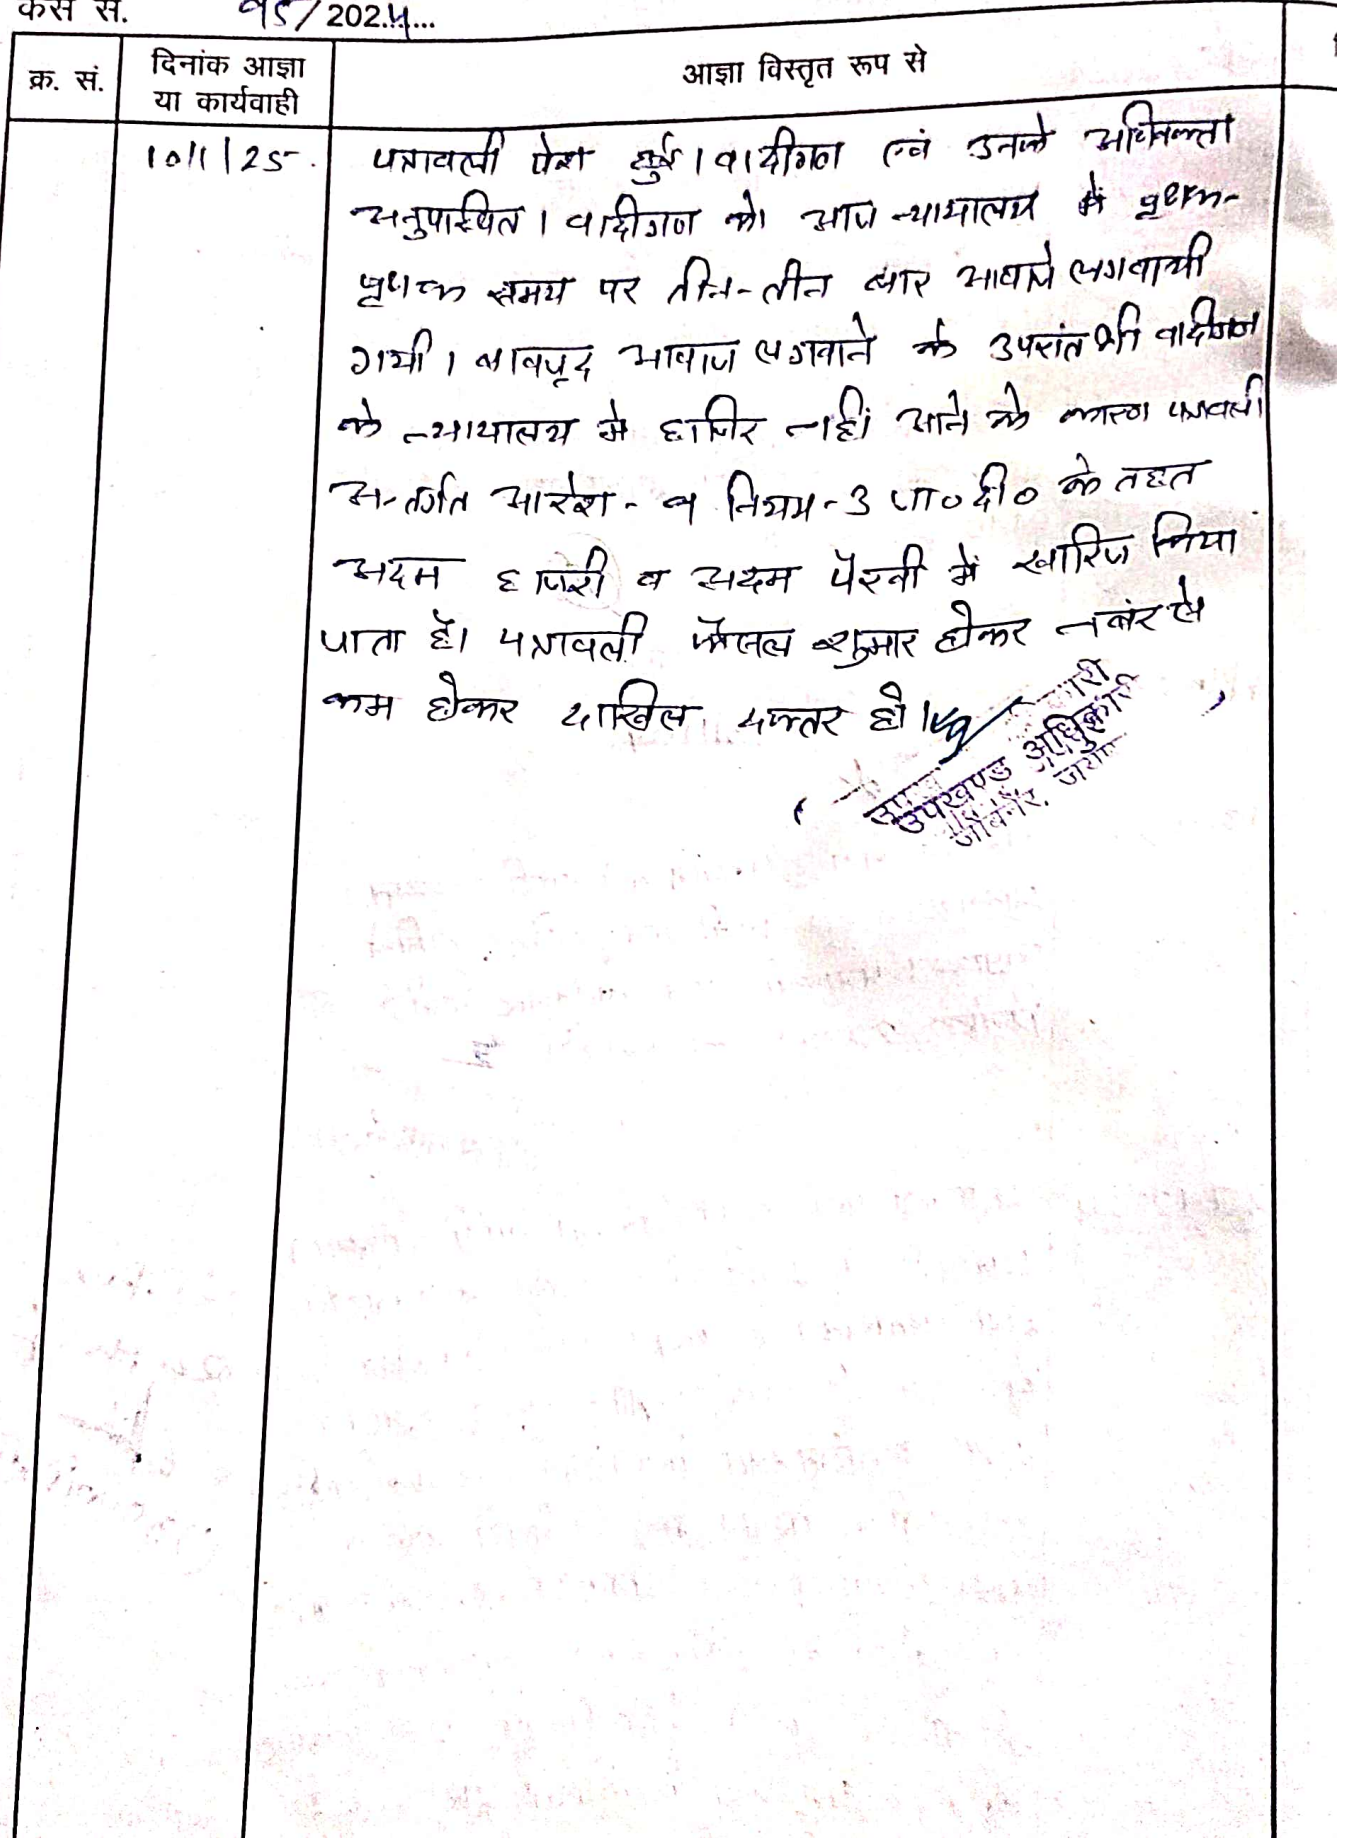 केस सं. 95/2024...
क्र. सं.
दिनांक आज्ञा
या कार्यवाही
आज्ञा विस्तृत रूप से
10/1/25.
पत्रावली पेश हुई। वादीगण एवं उनके अधिवक्ता
अनुपस्थित। वादीगण को आज न्यायालय में पृथक-
पृथक समय पर तीन-तीन बार आवाजे लगवायी
गयी। बावजूद आवाज लगवाने के उपरांत भी वादीगण
के न्यायालय मे हाजिर नहीं आने के कारण पत्रावली
अन्तर्गत आदेश-9 नियम-3 जा०दी० के तहत
अदम हाजरी व अदम पैरवी में खारिज किया
जाता है। पत्रावली फैसल शुमार होकर नंबर से
कम होकर दाखिल दफ्तर हो।
उपखण्ड अधिकारी
जोबनेर,